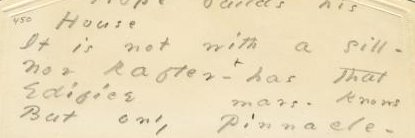 Hope builds his
450 House
It is not with a sill -
Nor Rafter - + has that
Edifice mars - knows
But only Pinnacle -